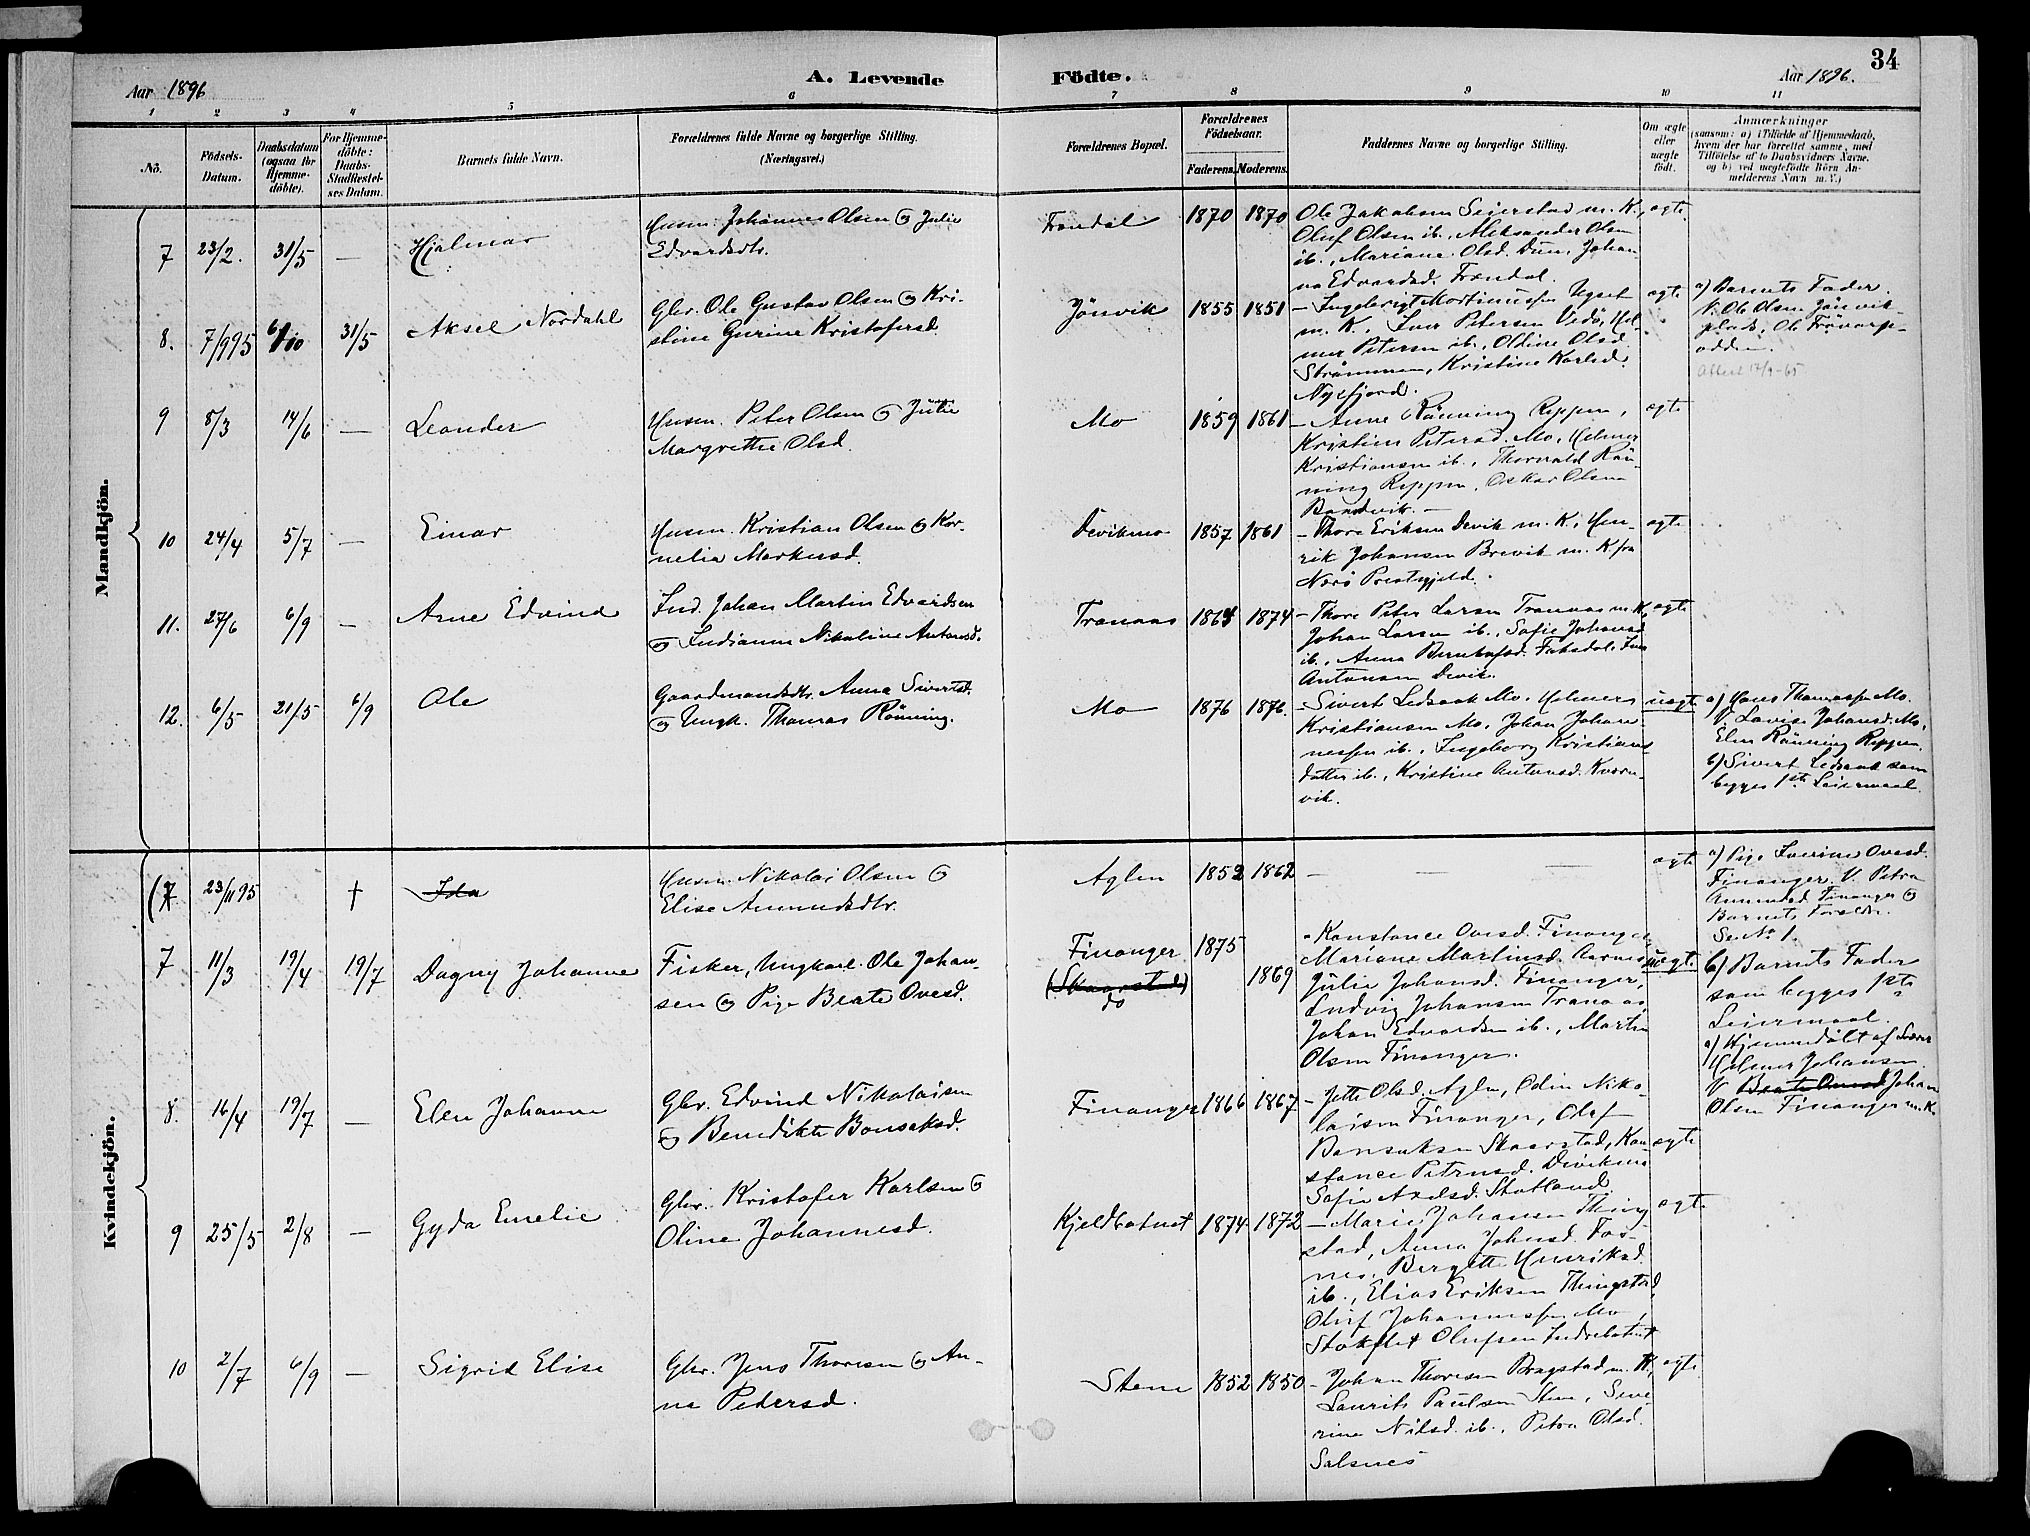 34
Aar 1896
A. Levende
Födte.
Aar 1896.
1 2 3 4 5 6 7 8 9 10 11
No.
Födsels-
Datum.
Daabsdatum
(ogsaa for
Hjemme-
döbte).
For Hjemme-
döbte:
Daabs-
Stadfæstel-
ses Datum.
Barnets fulde Navn.
Forældrenes fulde Navne og borgerlige Stilling.
(Næringsvei.)
Forældrenes Bopæl.
Forældrenes
Födselsaar.
Faderens. Moderens.
Faddernes Navne og borgerlige Stilling.
Om ægte
eller
uægte
födt.
Anmærkninger
(saasom: a) i Tilfælde af Hjemmedaab,
hvem der har forrettet samme, med
Tilföielse af to Daabsvidners Navne.
og b) ved uægtefödte Börn An-
melderens Navn m. V.)
Mandkjön.
7 23/2. 31/5 — Hjalmar
Husm. Johannes Olsen og Julie
Edvardsdtr.
1870 1870
Ole Jakobsen Seierstad m. K., ægte
Oluf Olsen ib., Aleksander Olsen
ib., Mariane Olsd. Dun, Johan-
na Edvardsd.
8. 7/9 95 6/10 31/5 Aksel Nordahl
Gbr. Ole Gustav Olsen og Kri-
stine Gurine Kristofersd.
Jönvik 1855 1851
— Ingebrigt Mortinussen ægte
m. K., Iver Petersen Vedö, Hel-
mer Petersen ib., Oldine Olsd.
Strömmen, Kristine Karlsd.
a) Barnets Fader.
V. Ole Olsen Jönvik-
plads, Ole
odden.
Attest 17/9-65
9 8/3 14/6 — Leander
Husm. Peter Olsen og Julie
Margrethe Olsd.
Mo 1859 1861
— Anne Rönning Reppen, ægte
Kristine Petersd. Mo, Helmer
Kristiansen ib., Thorvald Rön-
ning Reppen, Oskar Olsen
10 24/4 5/7 — Einar
Husm. Kristian Olsen og Kor-
nelia Markusd.
Devikmo 1857 1861
— Thore Eriksen Devik m. K., Hen- ægte
rik Johansen Brevik m. K. fra
Nærö Prestegjeld.
11. 27/6 6/9 — Arne Edvind
Ind. Johan Martin Edvardsen
og Indianna Nikoline Antonsd.
Tranaas 1864 1874
— Thore Peter Larsen Tranaas m. K., ægte
Johan Larsen ib., Sofie Johansd.
ib., Anna Faksdal,
Antonsen Devik.
12. 6/5 21/5 6/9 Ole
Gaardmandsdtr. Anna Sivertsd.
og Ungk. Thomas Rönning.
Mo 1876 1876.
— Sivert Ledsaak Mo, Helmer uægte
Kristiansen Mo, Johan Johan-
nessen ib., Ingeborg Kristians-
datter ib., Kristine Antonsd. Kvern-
vik.
a) Hans Thomassen Mo.
V. Lovise Johansd. Mo,
Elen Rönning Reppen.
b) Sivert Ledsaak som
begges 1ste Leiermaal.
Kvindekjön.
23/11 95 † Ida
Husm. Nikolai Olsen og
Elise Amundsdtr.
Aglen 1852 1862 — — — ægte
a) Pige Iverine Ovesd.
Finanger. V. Petra
Amundsd. Finanger og
Barnets Forældre.
Se No 1.
7 11/3 19/4 19/7 Dagny Johanne
Fisker, Ungkarl Ole Johan-
sen og Pige Beate Ovesd.
Finanger 1875
(Skaarstad) 1869
do
— Konstance Ovesd. Finanger,
Mariane Martinsd. uægte
Julie Johansd. Finanger,
Ludvig Johansen Tranaas,
Johan Edvardsen ib., Martin
Olsen Finanger.
b) Barnets Fader
som begges 1ste
Leiermaal.
a) Hjemmedöbt af Lærer
Helmer Johansen
V. Beate Ovesd. Johan
Olsen Finanger m. K.
8. 16/4 19/7 — Elen Johanne
Gbr. Edvind Nikolaisen
og Benedikte Bonsaksd.
Finanger 1866 1867
— Jette Olsd. Aglen, Odin Niko-
laisen Finanger, Olaf
Bonsaksen Skaarstad, Kon- ægte
stance Petersd. Devikmo
Sofie Axelsd. Statland.
9 25/5 2/8 — Gyda Emelie
Gbr. Kristofer Karlsen og
Oline Johannesd.
Kjeldbotnet 1874 1872
— Marie Johansen Thing- ægte
stad, Anna Johnsd. Fos-
nes, Bergitte Henriksd.
ib., Elias Eriksen Thingstad,
Oluf Johannessen Mo,
Stokflet Olufsen Indrebotnet
10 2/7 6/9 — Sigrid Elise
Gbr. Jens Thoresen og An-
na Petersd.
Stene 1852 1850
— Johan Thoresen Bragstad m. K., ægte
Laurits Paulsen Stene, Seve-
rine Nilsd. ib., Petra Olsd.
Salsnes